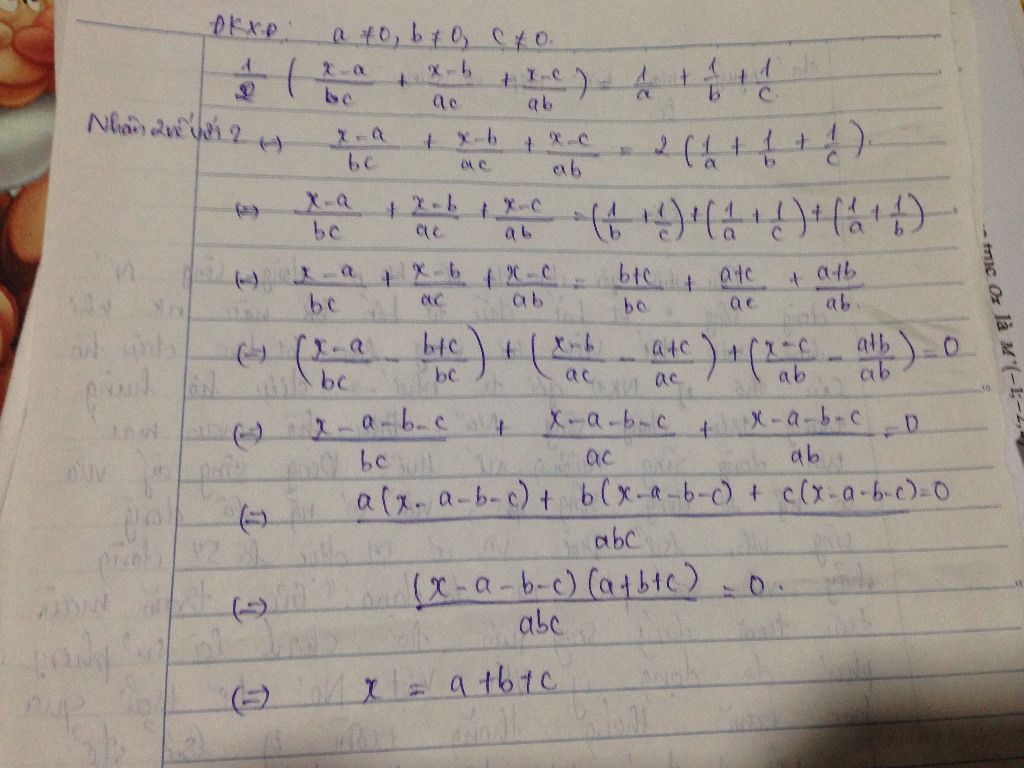 ĐKXĐ: a ≠ 0, b ≠ 0, c ≠ 0.
1/2 ( (x-a)/bc + (x-b)/ac + (x-c)/ab ) = 1/a + 1/b + 1/c
Nhân 2 vế với 2 (=) (x-a)/bc + (x-b)/ac + (x-c)/ab = 2 (1/a + 1/b + 1/c).
(=) (x-a)/bc + (x-b)/ac + (x-c)/ab = (1/b + 1/c) + (1/a + 1/c) + (1/a + 1/b)
(=) (x-a)/bc + (x-b)/ac + (x-c)/ab = (b+c)/bc + (a+c)/ac + (a+b)/ab.
(=) ((x-a)/bc - (b+c)/bc) + ((x-b)/ac - (a+c)/ac) + ((x-c)/ab - (a+b)/ab) = 0
(=) (x-a-b-c)/bc + (x-a-b-c)/ac + (x-a-b-c)/ab = 0
(=) (a(x-a-b-c) + b(x-a-b-c) + c(x-a-b-c))/abc = 0
(=) ((x-a-b-c)(a+b+c))/abc = 0.
(=) x = a+b+c
trục Ox là M'(-1;-